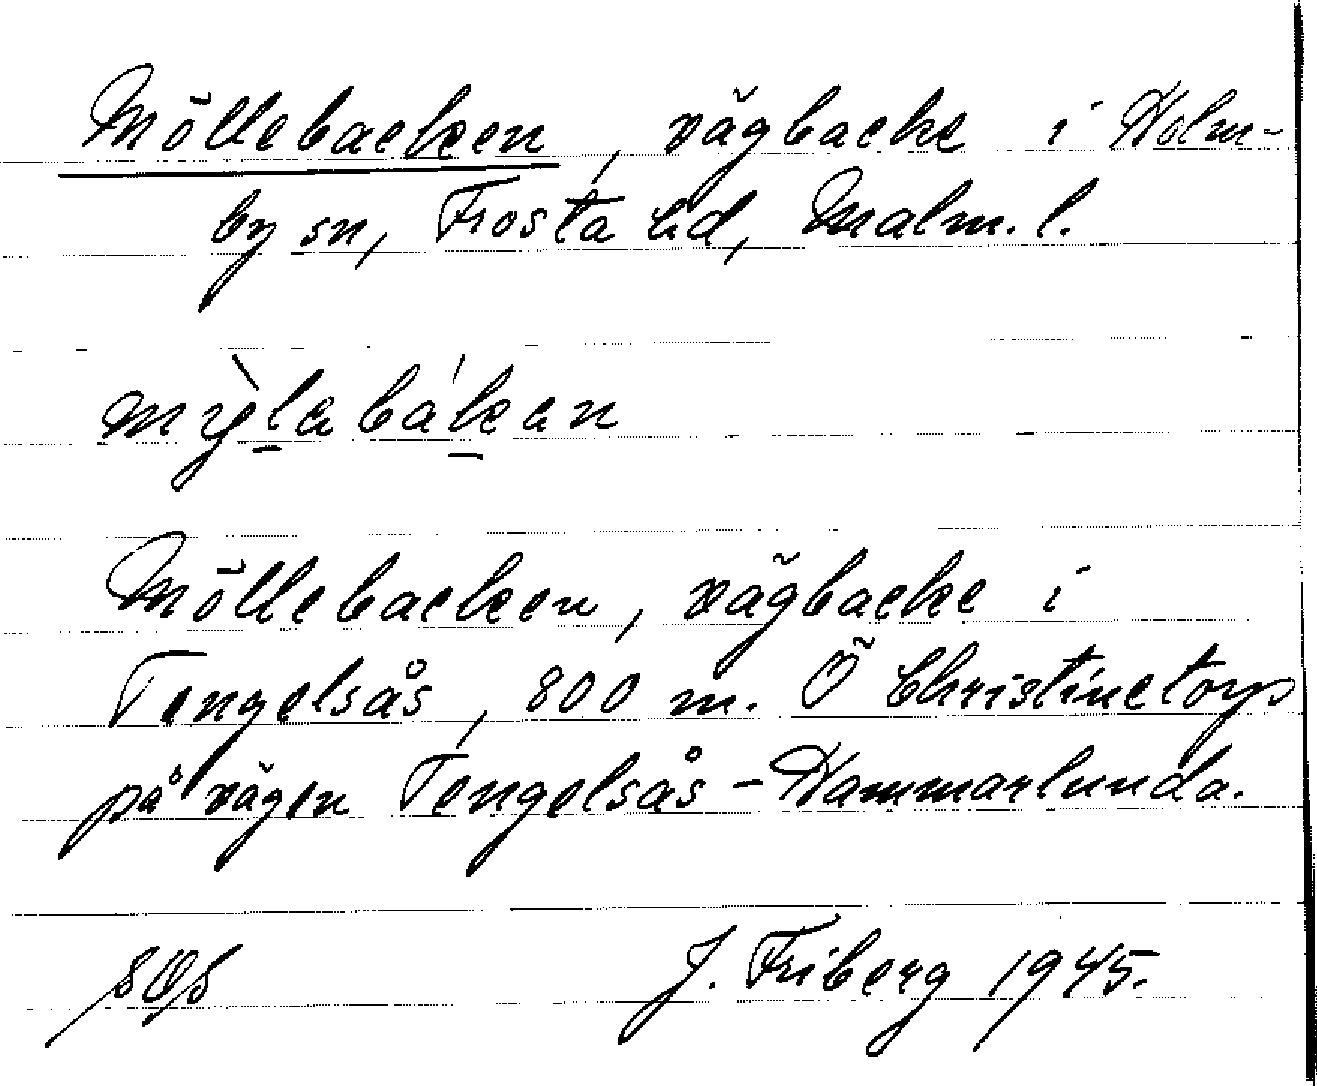 Möllebacken, vägbacke i Holm-
by sn, Frosta hd, Malm. l.
Möllebacken, vägbacke i
Tengelsås, 800 m. Ö Christinetorp
på vägen Tengelsås - Hammarlunda.
J. Friberg 1945.